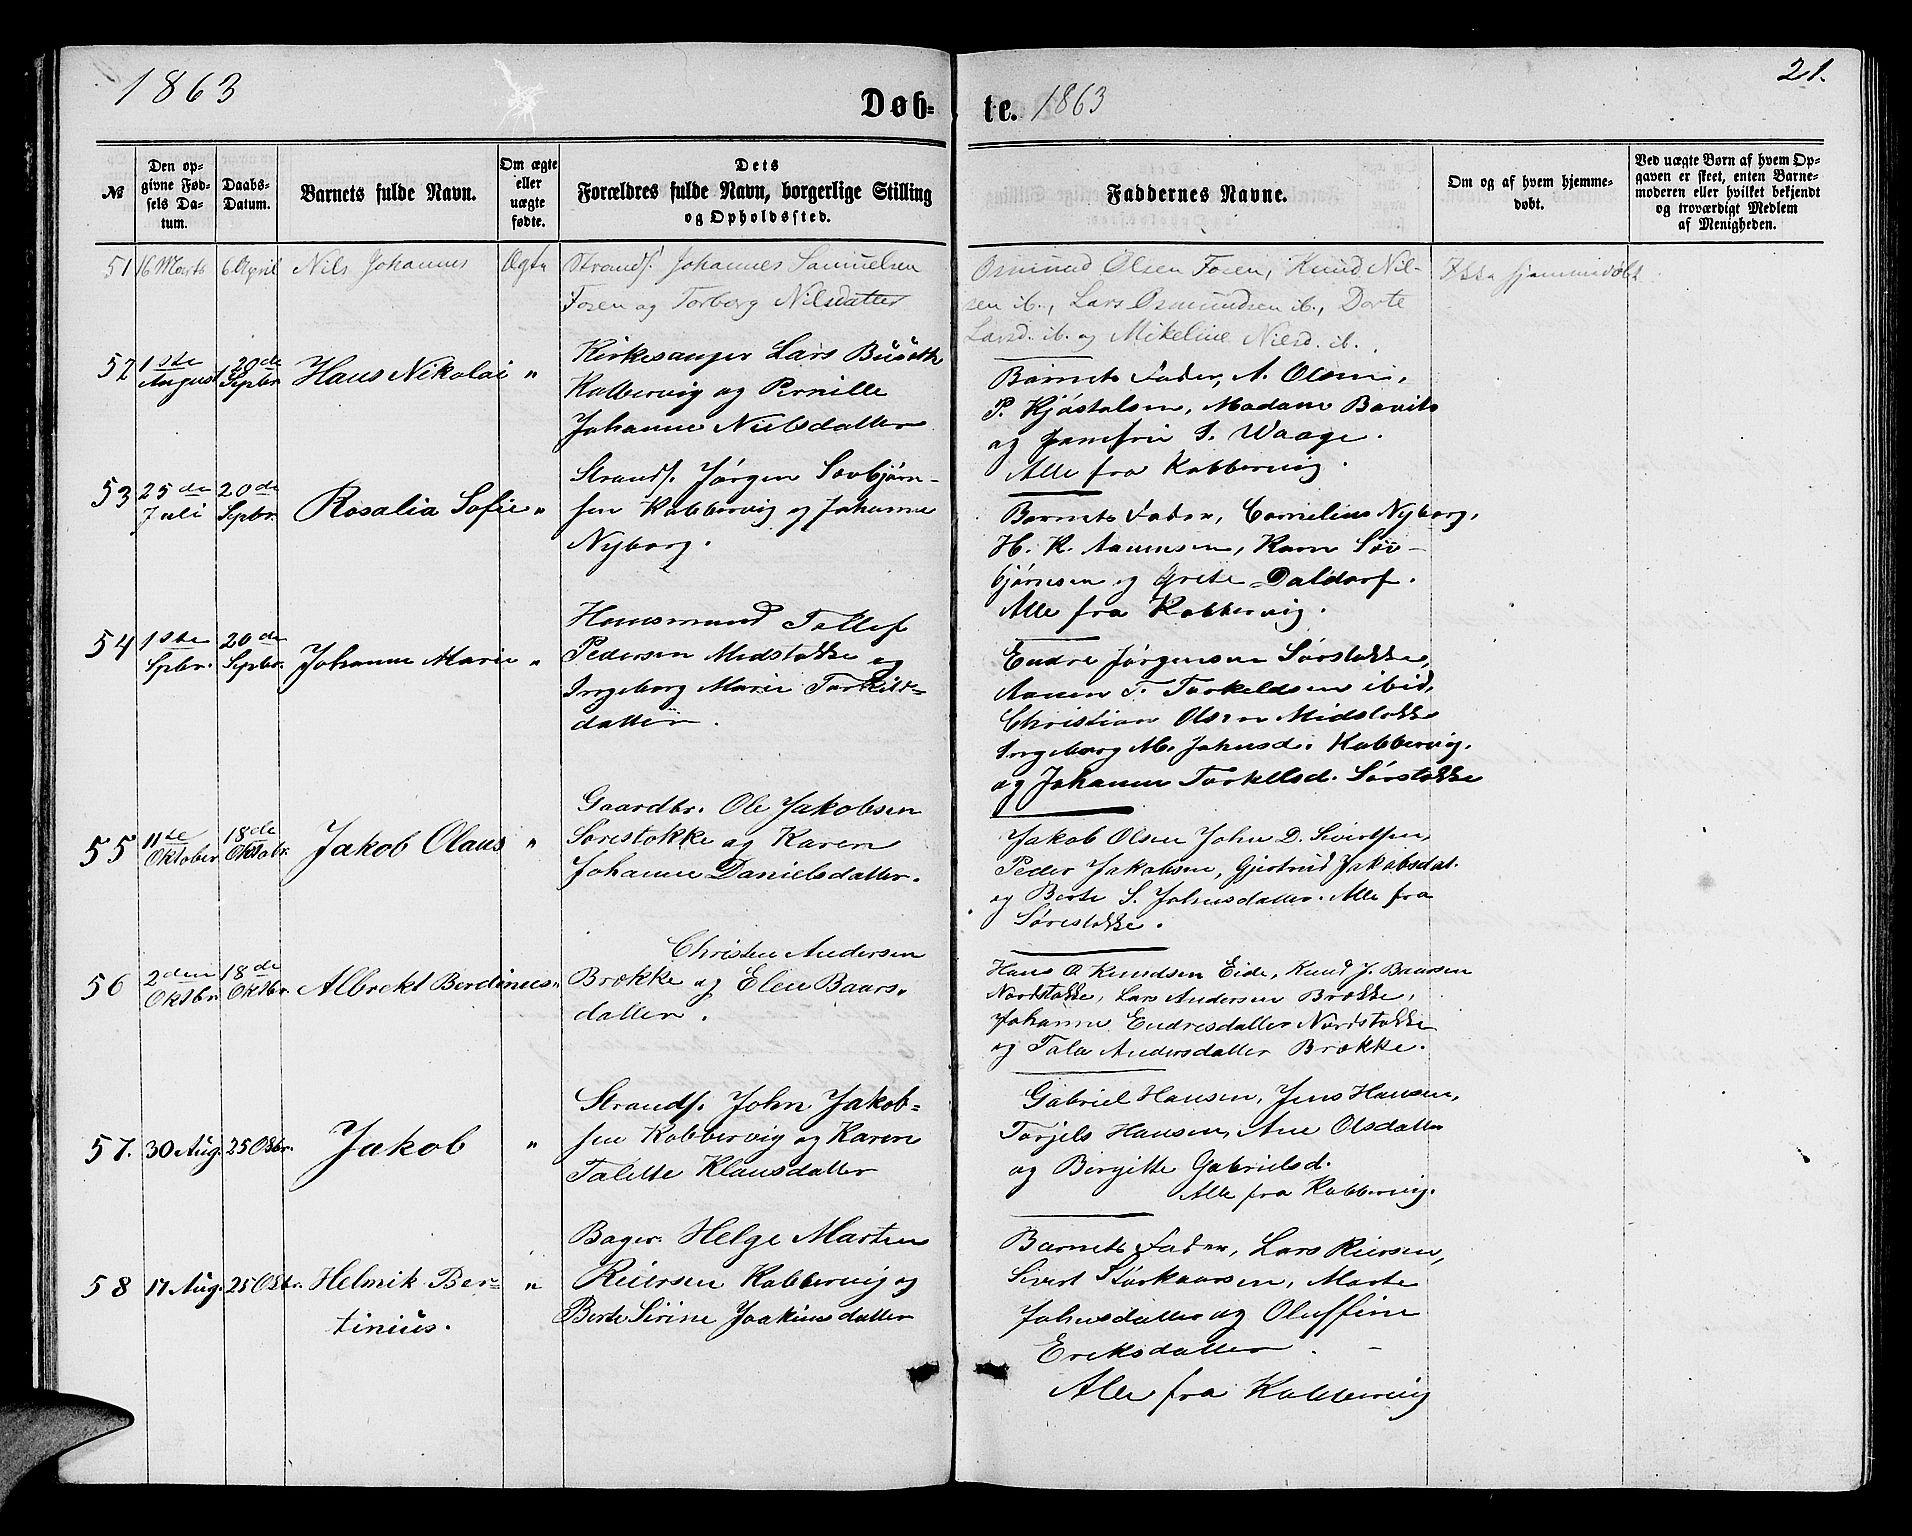 1863
Døb-
te. 1863
21.
№
Den op-
givne Fød-
sels Da-
tum.
Daabs-
Datum.
Barnets fulde Navn.
Om ægte
eller
uægte
fødte.
Dets
Forældres fulde Navn, borgerlige Stilling
og Opholdssted.
Faddernes Navne.
Om og af hvem hjemme-
døbt.
Ved uægte Børn af hvem Op-
gaven er skeet, enten Barne-
moderen eller hvilket bekjendt
og troværdigt Medlem
af Menigheden.
51 16 Marts 6 April Nils Johannes Ægte
Strands. Johannes Samuelsen
Fosen og Torberg Nilsdatter
Osmund Olsen Fosen, Knud Nil-
sen ib., Lars Osmundsen ib., Dorte
Larsd. ib. og Mikeline Nilsd. ib.
hjemmedøbt
52 1ste August 20de Sepbr. Hans Nikolai "
Kirkesanger Lars
Kobbervig og Pernille
Johanne Nielsdatter
Barnets Fader, A. Olsen,
P. Kjøstolsen, Madam
og Jomfru S. Waage.
Alle fra Kobbervig.
53 25de Juli 20de Sepbr. Rosalia Sofie "
Strands. Jørgen Sovbjørn-
sen Kobbervig og Johanne
Nyborg.
Barnets Fader, Cornelius Nyborg,
H. K. Aanensen, Karn Søv-
bjørnsen og Grete Daldorf.
Alle fra Kobbervig.
54 1ste Spbr. 20de Sepbr. Johanne Marie "
Huusmand Tollef
Pedersen Midstokke og
Ingeborg Marie Torkilds-
datter.
Endre Jørgensen Sørstokke,
Aanen T. Torkeldsen ibid,
Christian Olsen Midstokke
Ingeborg M. Johnsd. Kobbervig.
og Johanne Torkellsd. Sørstokke
55 11te Oktober 18de Oktobr. Jakob Olaus "
Gaardbr. Ole Jakobsen
Sørestokke og Karen
Johanne Danielsdatter.
Jakob Olsen John D. Sivertsen,
Peder Jakobsen, Gjertrud Jakobsdat.
og Berte S. Johnsdatter. Alle fra
Sørestokke.
56 2den Oktbr. 18de Oktbr. Albrekt Berdinius "
Christen Andersen
Brække og Elen Baars-
datter.
Hans O. Knudsen Eide, Knud J. Baarsen
Nordstokke, Lars Andersen Brække,
Johanne Endresdatter Nordstokke
og Tala Andersdatter Brække.
57. 30 Aug. 25 Oktbr. Jakob "
Strands. John Jakob-
sen Kobbervig og Karen
Talette Klausdatter
Gabriel Hansen, Jens Hansen,
Torjels Hansen, Ane Olsdatter
og Birgitte Gabrielsd.
Alle fra Kobbervig.
58 17 Aug. 25 Oktbr. Helmik Ber-
tinius. "
Bager Helge Marten
Reiersen Kobbervig og
Berte Sirine Joakimsdatter
Barnets Fader, Lars Reiersen,
Sivert Storkaarsen, Marte
Johnsdatter og Oluffine
Eriksdatter.
Alle fra Kobbervig